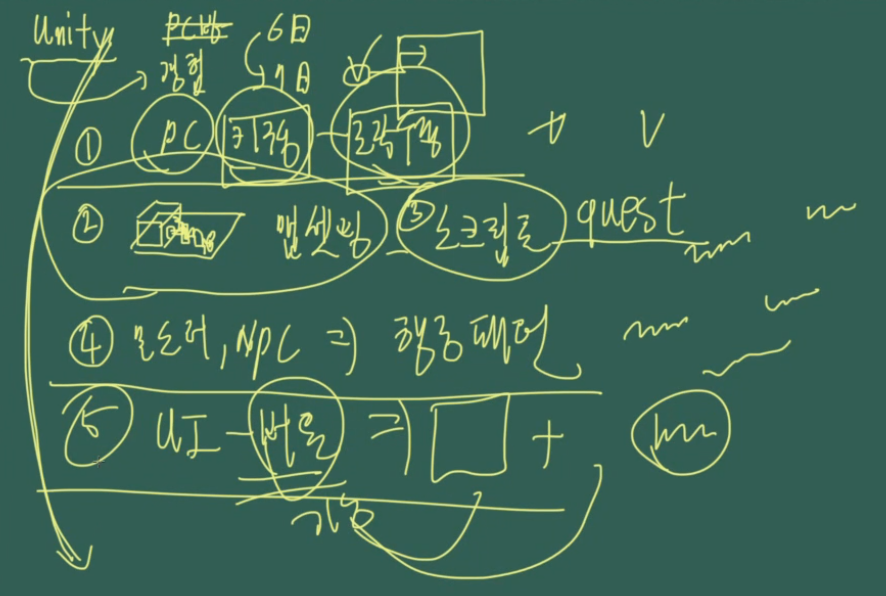 Unity PC방 6日
경험 7日
① PC 키구동
② 맵셋팅 ③ 스크립트 quest
④ 몬스터, NPC ⇒ 행동패턴
5 UI - 버튼 ⇒ +
기능